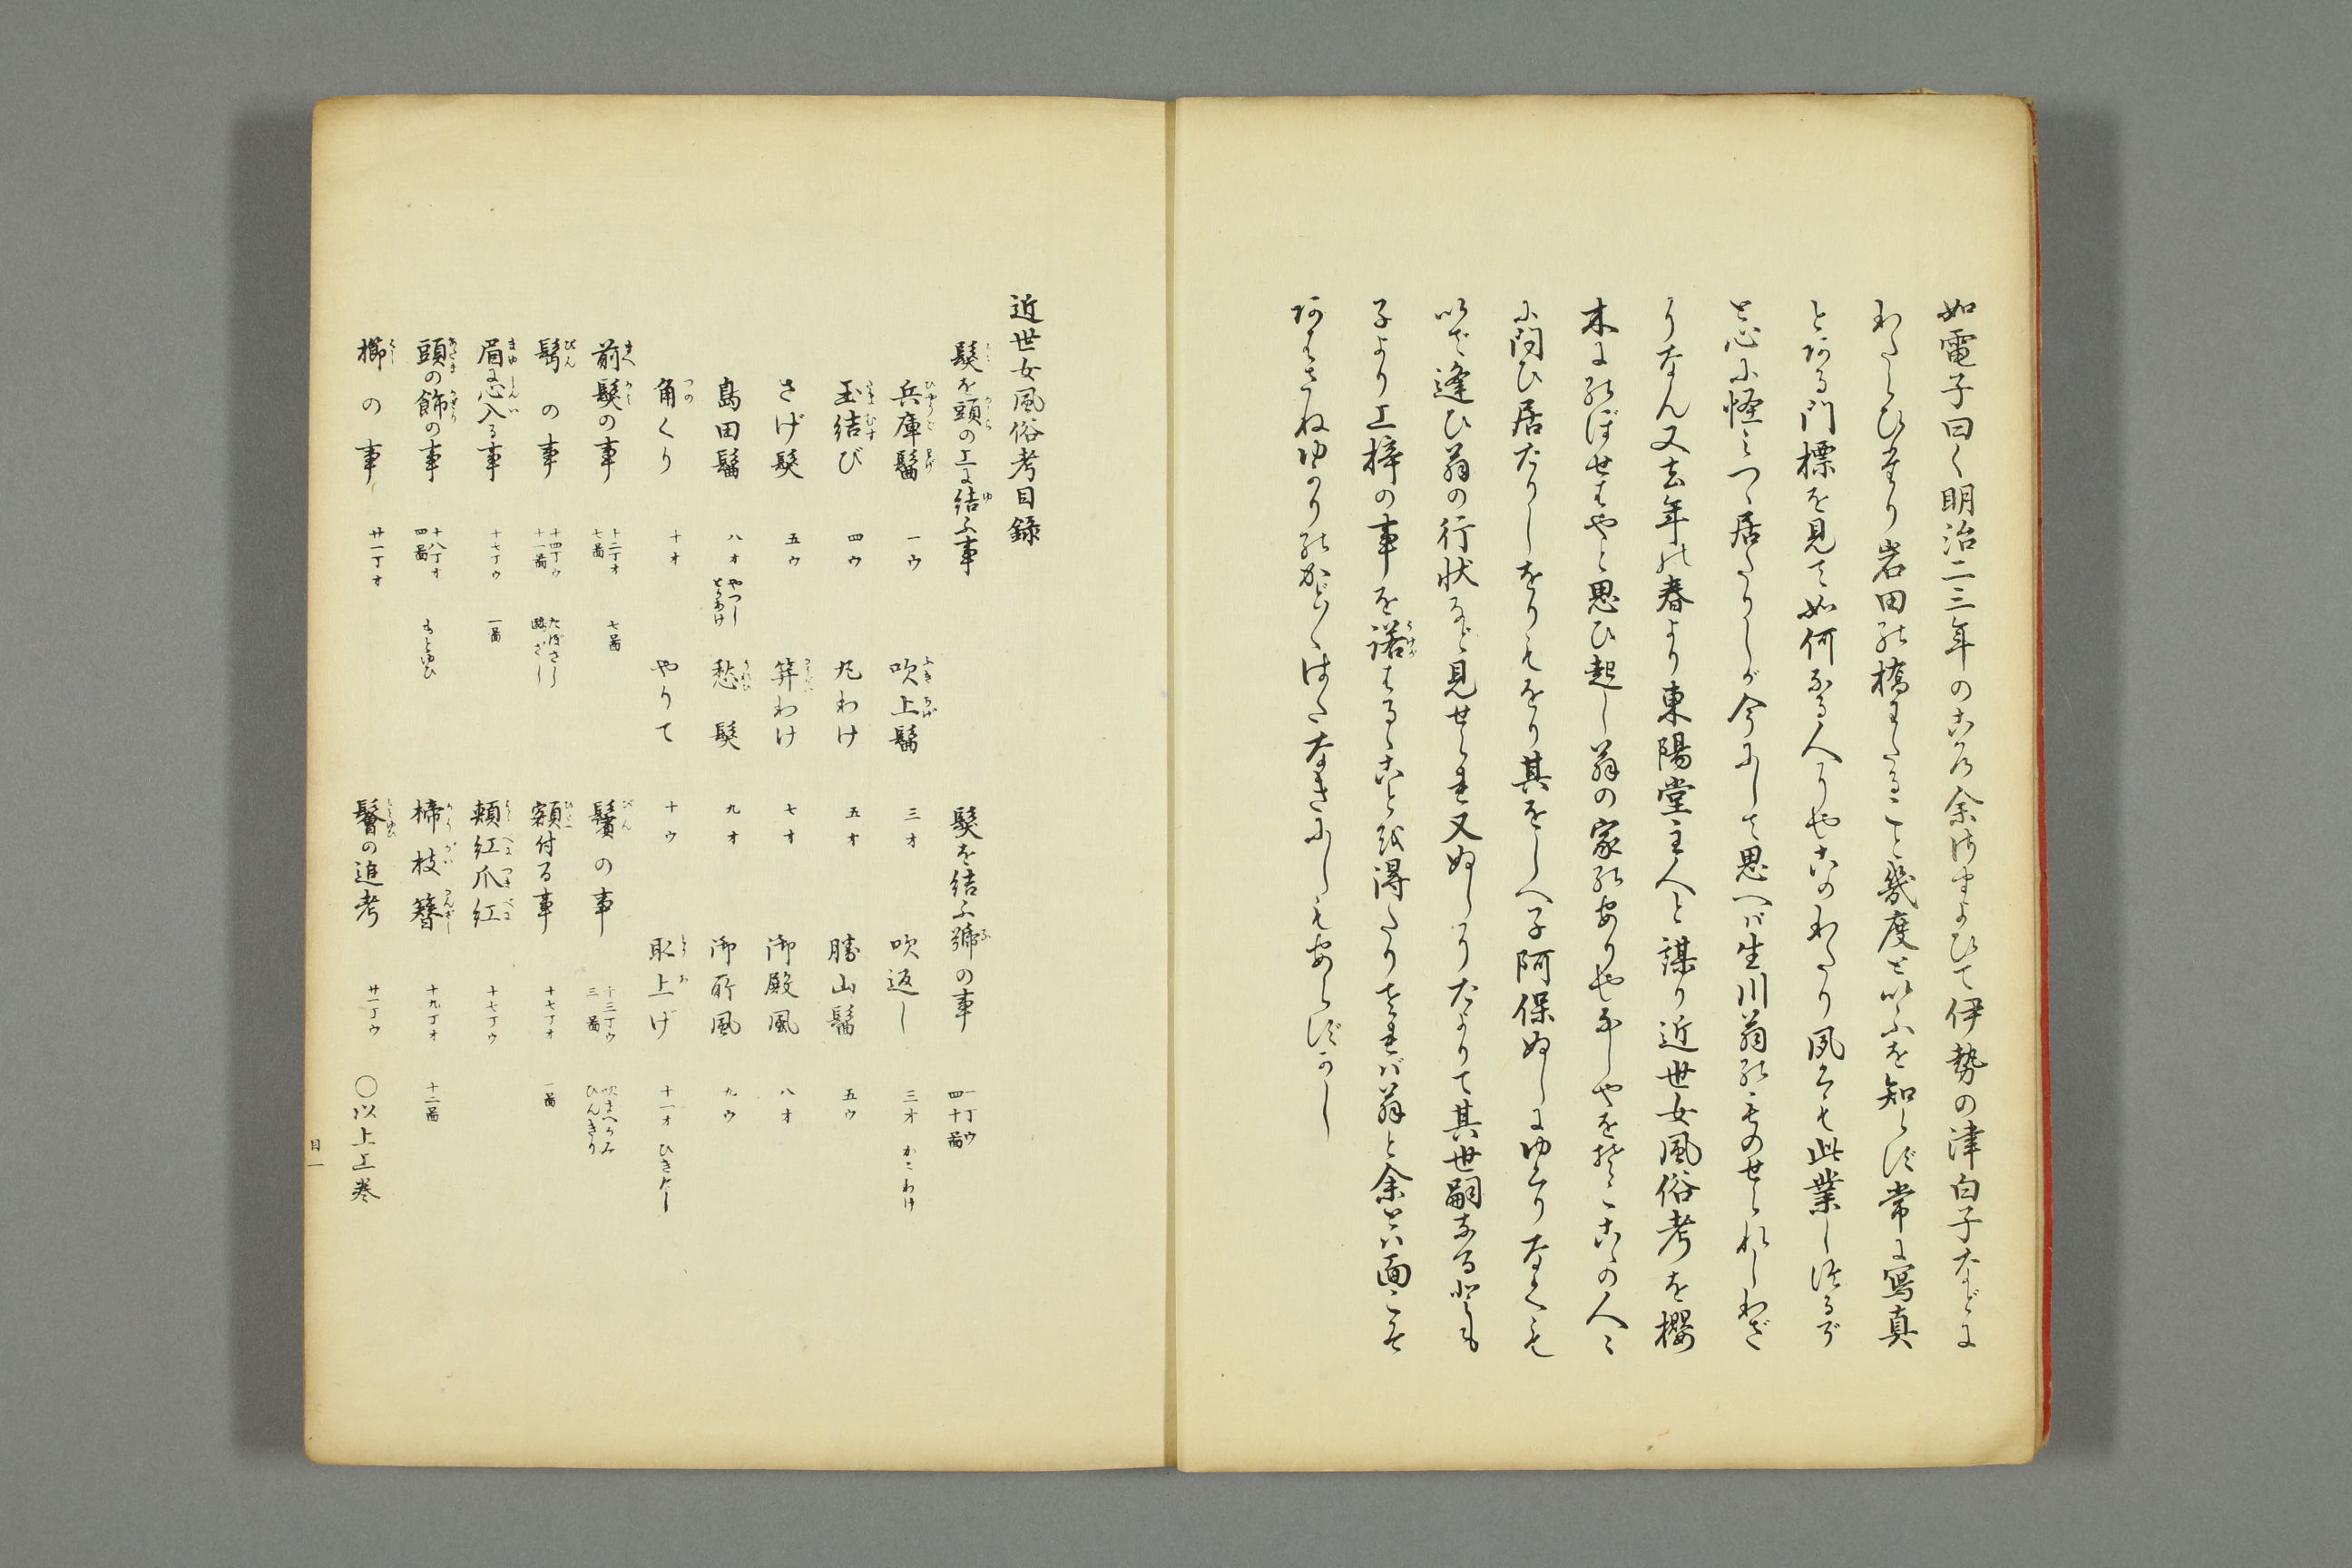 如電子曰く明治二三年のころ余はまよひて伊勢の津白子などに
わたらひせり岩田の橋わたること幾度といふを知らず常に寫真
とある門標を見て如何なる人にやこのわたり夙くも此業しぬるぞ
と心に怪みつゝ居たりしが今にして思へバ生川翁のものせられしわざ
りなん又去年の春より東陽堂主人と謀り近世女風俗考を櫻
木にのぼせばやと思ひ起し翁の家のありやなしやをそこここの人々
に問ひ居たりしをりもをり其をしへ子阿保ぬしにゆくりなくも
以て逢ひ翁の行状など見せられ又ぬしのたよりて其世嗣なる
子より上梓の事を諾はるゝことを得たりされバ翁と余とハ面こそ
あはさねゆかりのかとくはたなきにしもあらずかし
近世女風俗考目録
髪を頭の上に結ふ事
髪を結ふ號の事 一丁ウ 四十圖
兵庫髷 一ウ
吹上髷 三オ
吹返し 三オ かこわけ
玉結び 四ウ
丸わけ 五オ
勝山髷 五ウ
さげ髪 五ウ
笄わけ 七オ
御殿風 八オ
島田髷 八オ やつし とりあけ
愁髪 九オ
御所風 九ウ
角くり 十オ
やりて 十ウ
取上げ 十一オ ひきたし
前髪の事 十二丁オ 七圖 七圖
鬢の事 十三丁ウ 三圖 吹まへかみ ひんきり
髩の事 十四丁ウ 十一圖 たぼさし 鬢ざし
額付る事 十七丁オ 一圖
眉に心入る事 十七丁ウ 一圖
頬紅爪紅 十七丁ウ
頭の飾の事 十八丁オ 四圖 もとゆひ
楴枝簪 十九丁オ 十二圖
櫛の事 廿一丁オ
鬠の追考 廿一丁ウ
○以上上巻
目一